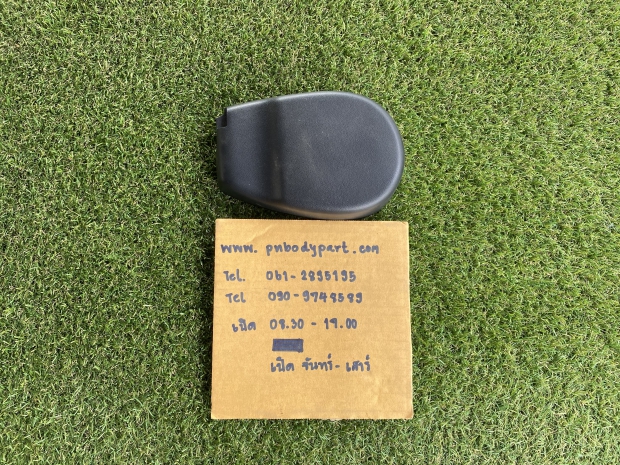 www. pnbodypart.com
Tel. 061-2895195
Tel 090-9748589
เปิด 08.30 - 19.00
เปิด จันทร์ - เสาร์